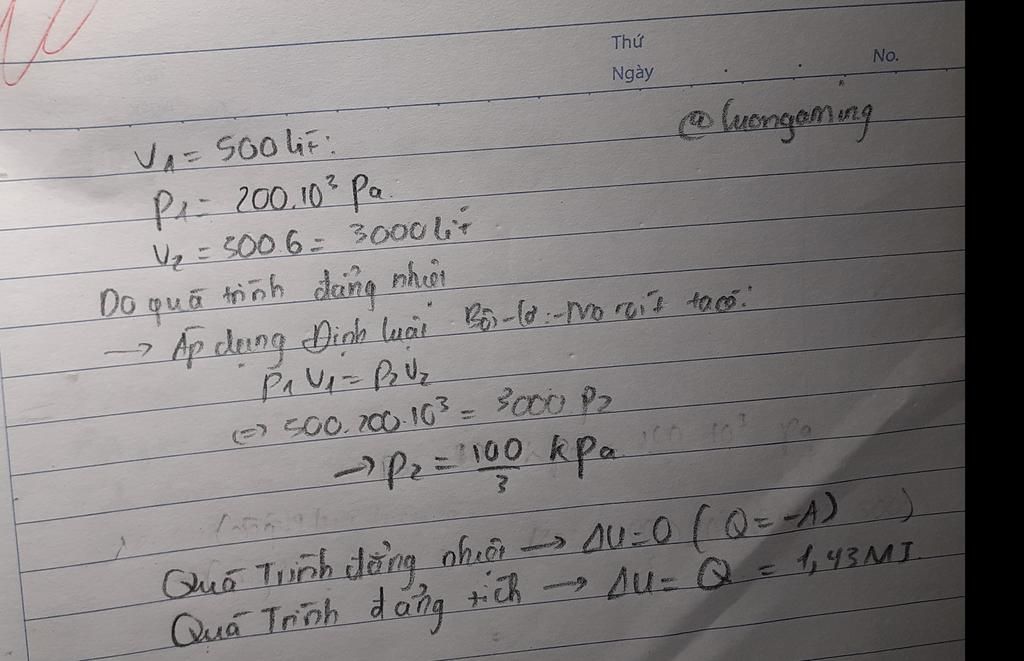 Thứ
Ngày
No.
@luongaming
V₁ = 500 lít:
P₁ = 200.10³ Pa.
V₂ = 500.6 = 3000 lít
Do quá trình đẳng nhiệt
→ Áp dụng Định luật Bôi-lơ-Ma ri ốt ta có:
P₁V₁ = P₂V₂
⇔ 500.200.10³ = 3000 P₂
→ P₂ = 100/3 kPa
Quá Trình đẳng nhiệt → ΔU=0 (Q=-A)
Quá Trình đẳng tích → ΔU = Q = 1,43MJ